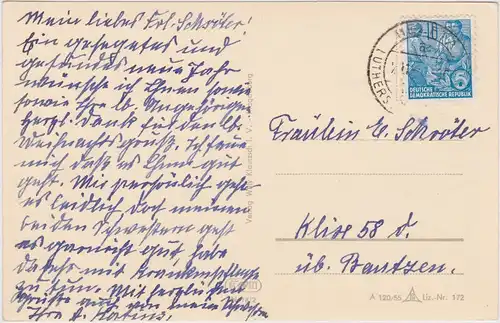 Mein liebes Frl. Schröter!
Ein gesegnetes und
gesundes neues Jahr
wünsche ich Ihnen sowie
sowie Ihre lb. Angehörige
Herzl. Dank für den lb.
Weihnachtsgruß. Ich freue
mich daß es Ihnen gut
geht. Mir persönlich geht
es leidlich doch meinen
beiden Schwestern geht
es garnicht gut, habe
daher mit Krankenpflege
zu tun. Mit herzlichen
Grüße auch von meinen
Ihre
DEUTSCHE
DEMOKRATISCHE REPUBLIK
5
LUTHERS
Fräulein E. Schröter
Klix 58 d.
üb. Bautzen.
A 120/55 Liz.-Nr. 172